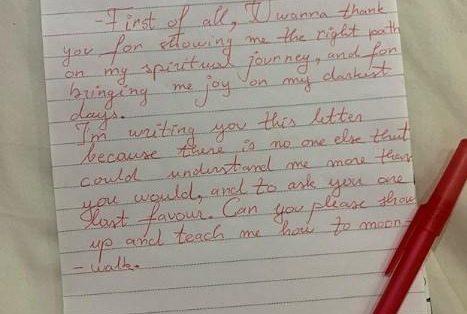 -First of all, I wanna thank
you for showing me the right path
on my spiritual journey, and for
bringing me joy on my darkest
days.
I'm writing you this letter
because there is no one else that
could understand me more than
you would, and to ask you one
last favour. Can you please show
up and teach me how to moon-
-walk.